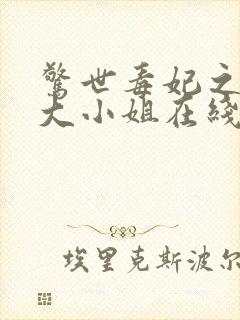 驚世毒妃之
大小姐在綫
埃里克斯波尔